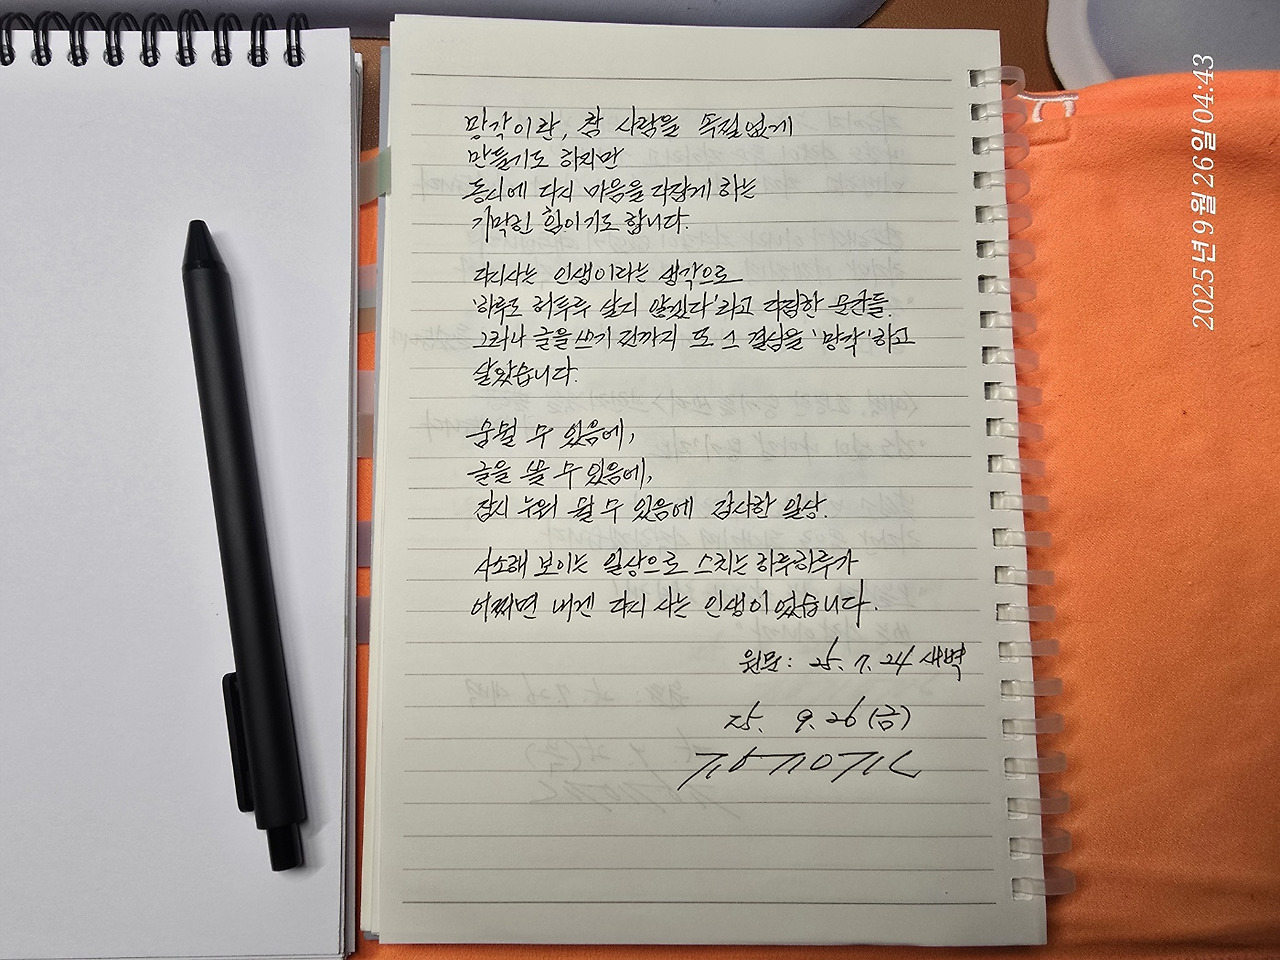 망각이란, 참 사람을 속절없게
만들기도 하지만
동시에 다시 마음을 다잡게 하는
기막힌 힘이기도 합니다.
다시 사는 인생이라는 생각으로
'하루도 허투루 살지 않겠다'라고 다짐한 순간들.
그러나 글을 쓰기 전까지 또 그 결심을 '망각'하고
살았습니다.
숨쉴 수 있음에,
글을 쓸 수 있음에,
잠시 누워 쉴 수 있음에 감사한 일상.
사소해 보이는 일상으로 스치는 하루하루가
어쩌면 내겐 다시 사는 인생이었습니다.
원문: 25. 7. 24 새벽
25. 9. 26 (금)
2025년 9월 26일 04:43